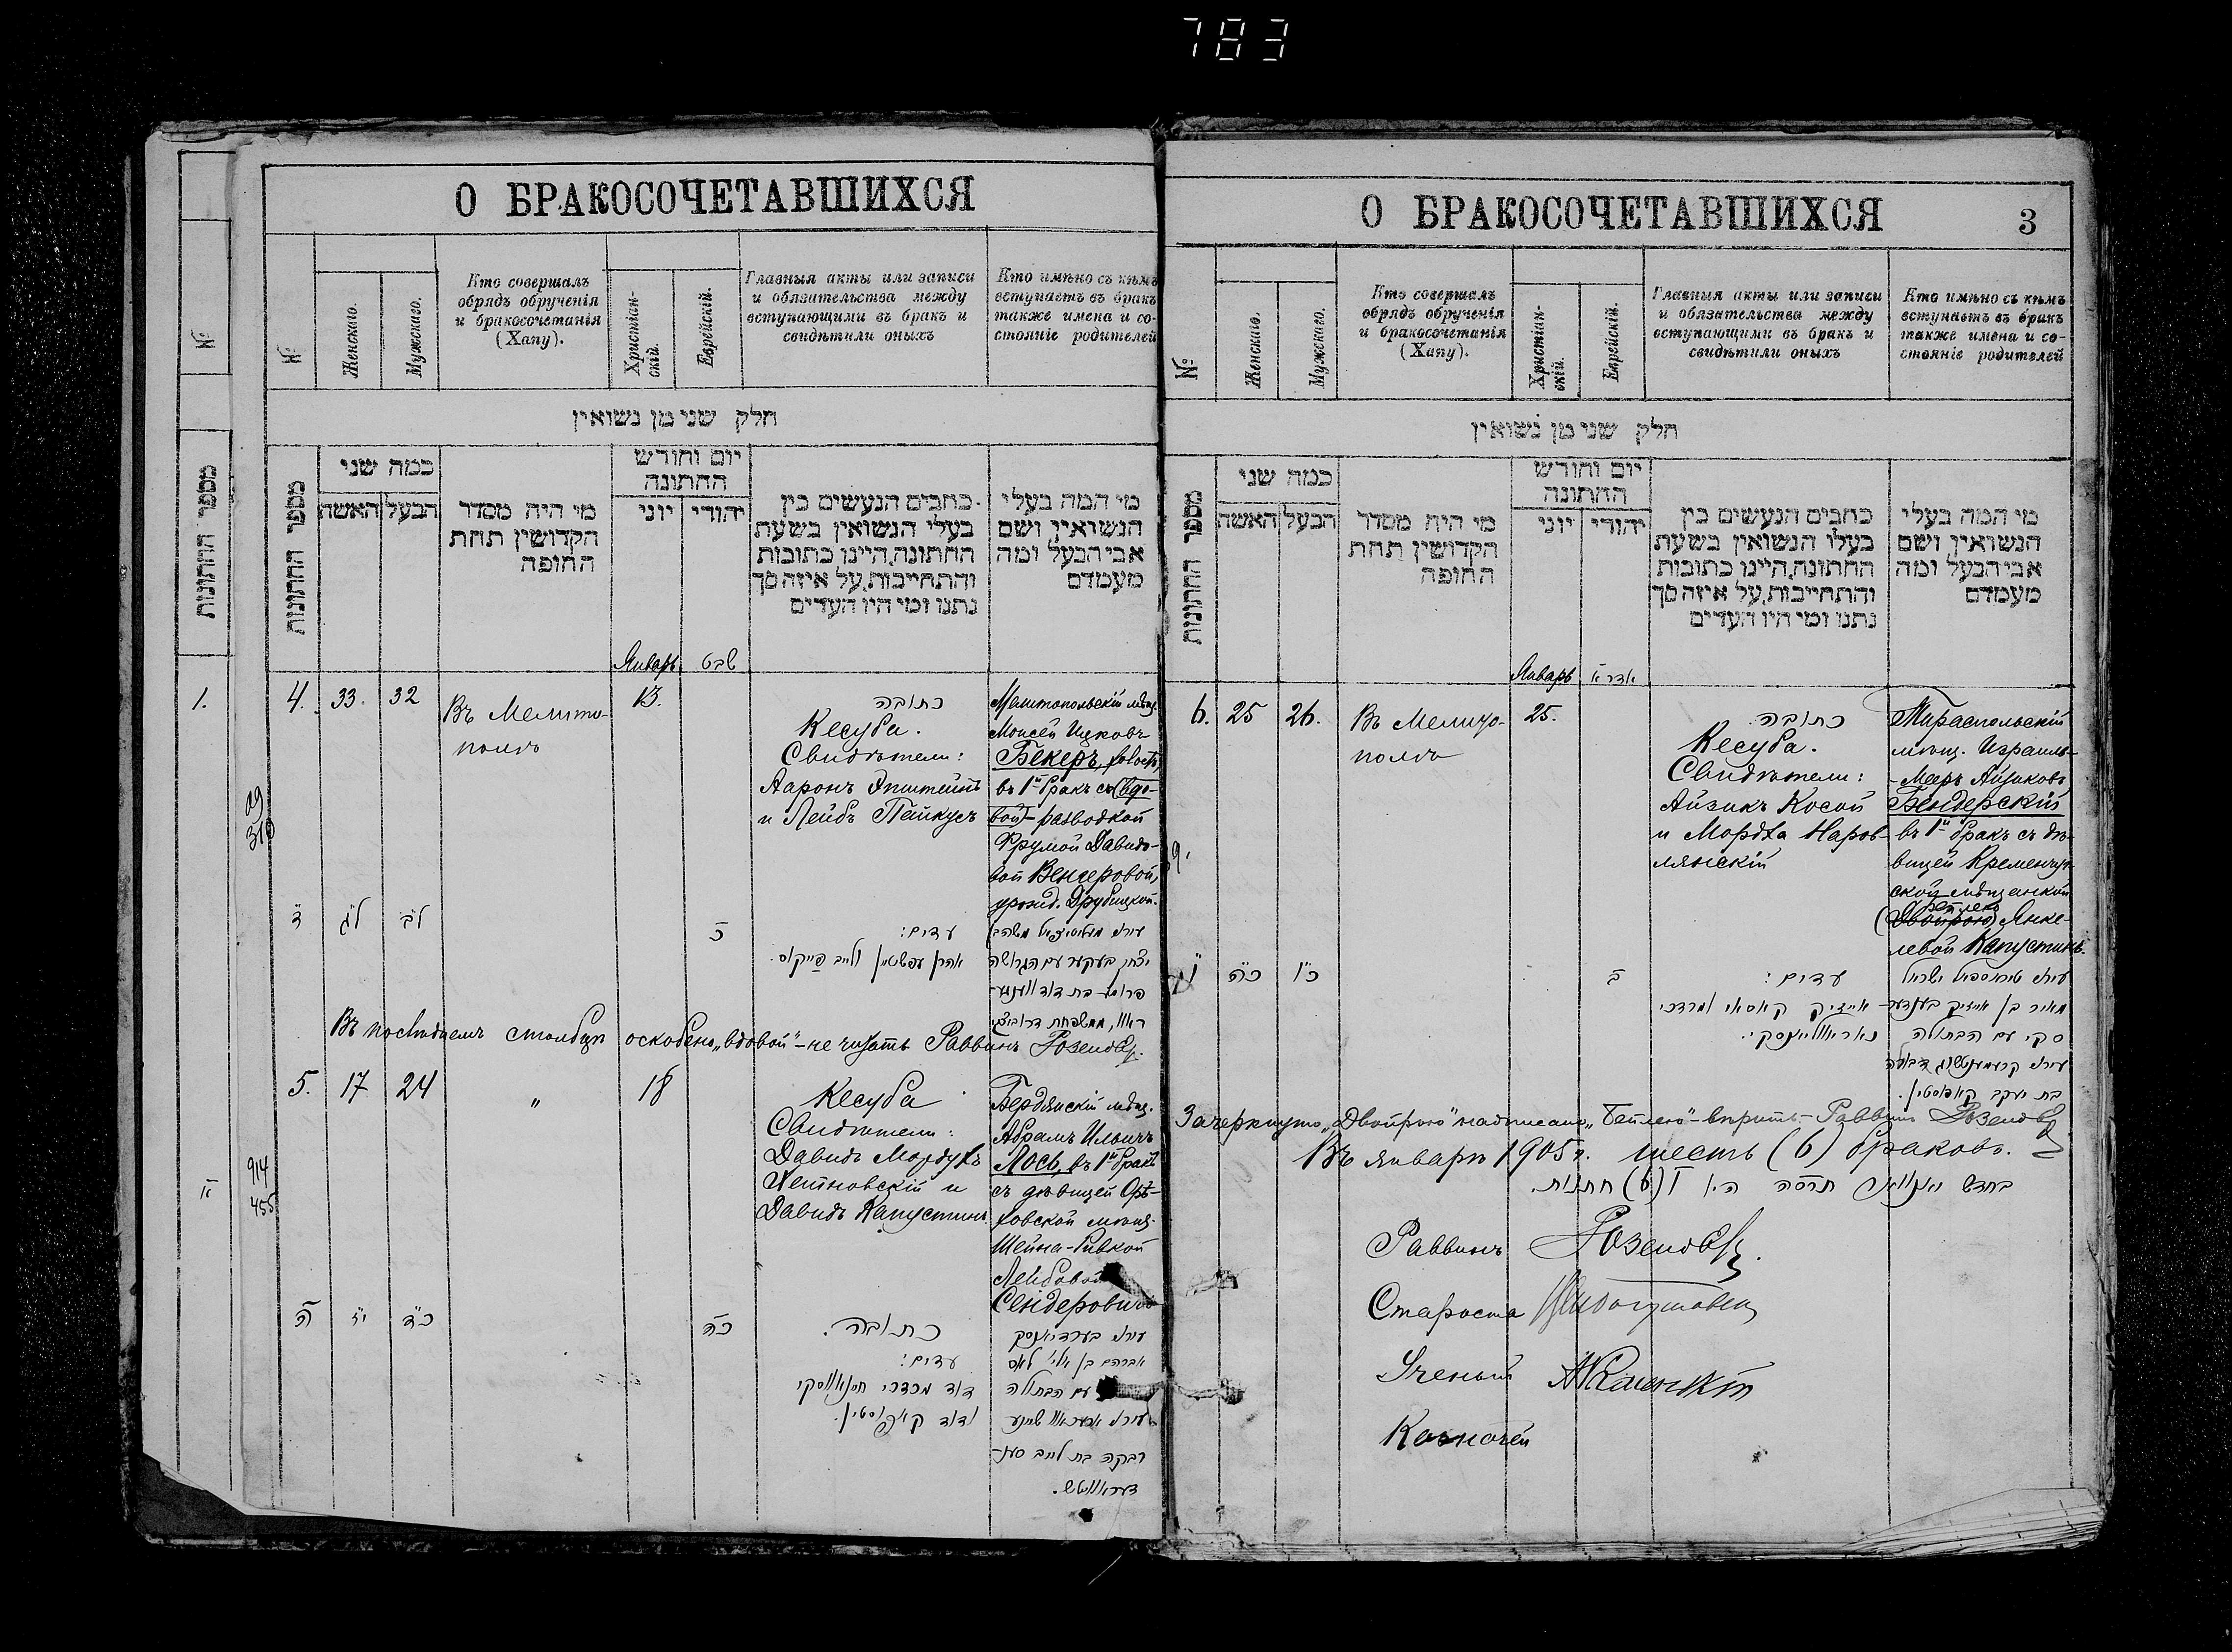 783
О БРАКОСОЧЕТАВШИХСЯ
№
№
Женскаго.
Мужскаго.
Кто совершалъ
обрядъ обрученія
и бракосочетанія
(Хапу).
Христіан-
скій.
Еврейскій.
Главныя акты или записи
и обязательства между
вступающими въ бракъ и
свидѣтили оныхъ
Кто имѣно съ кѣмъ
вступаетъ въ бракъ
также имена и со-
стояніе родителей
חלק שני מן נשואין
מספר החתונות
מספר החתונות
כמה שני
האשה
הבעל
מי היה מסדר
הקדושין תחת
החופה
יום וחודש
החתונה
יוני
יהודי
כתבים הנעשים בין
בעלי הנשואין בשעת
החתונה, היינו כתובות
והתחייבות, על איזה סך
נתנו ומי היו העדים
מי המה בעלי
הנשואין ושם
אבי הבעל ומה
מעמדם
Январь
שבט
1.
4.
33.
32
Въ Мелито-
полѣ
13.
כתובה
Кесуба.
Свидѣтели:
Ааронъ Эпштейнъ
и Лейбъ Пайкусъ
Мелитопольскій мѣщ.
Моисей Ицковъ
Бекеръ, холост,
въ 1й бракъ съ (вдо-
вой)- разводкой
Фрумой Давидо-
вой Венгеровой,
урожд. Друбицкой.
ד
לג
לב
כ
עדים:
אהרן עפשטיין ולייב פייקוס.
יצחק בעקער עם הגרושה
פרומע בת דוד
Въ послѣднемъ столбцѣ оскоблено „вдовой"- не читать Раввинъ
5.
17
24
"
18
Кесуба
Свидѣтели:
Давидъ Мордухъ
Хейновскій и
Давидъ Капустинъ
Бердянскій мѣщ.
Абрамъ Ильичъ
Лось, въ 1й бракъ
съ дѣвицей Орѣ-
ховской мѣщ.
Шейна-Ривкой
Лейбовой
Сендеровичъ
914
455
ה
יז
כד
כה
כתובה.
עדים:
דוד מרדכי חיינאווסקי
ודוד קאפוסטין.
עירא בערדיאנסק
אברהם בן אלי' לאס
עם הבתולה
רבקה בת לייב סענ-
דעראוויטש.
О БРАКОСОЧЕТАВШИХСЯ
3
№
Женскаго.
Мужскаго.
Кто совершалъ
обрядъ обрученія
и бракосочетанія
(Хапу).
Христіан-
скій.
Еврейскій.
Главныя акты или записи
и обязательства между
вступающими въ бракъ и
свидѣтили оныхъ
Кто имѣно съ кѣмъ
вступаетъ въ бракъ
также имена и со-
стояніе родителей
חלק שני מן נשואין
מספר החתונות
כמה שני
האשה
הבעל
מי היה מסדר
הקדושין תחת
החופה
יום וחודש
החתונה
יוני
יהודי
כתבים הנעשים בין
בעלי הנשואין בשעת
החתונה, היינו כתובות
והתחייבות, על איזה סך
נתנו ומי היו העדים
מי המה בעלי
הנשואין ושם
אבי הבעל ומה
מעמדם
Январь
אדר א
6.
25
26.
Въ Мелито-
полѣ
25.
כתובה.
Кесуба.
Свидѣтели:
Айзикъ Косой
и Мордха Наров-
лянскій
Тираспольскій
мѣщ. Израиль-
-Меръ Айзиковъ
Бендерскій
въ 1й бракъ съ дѣ-
вицей Кременчуг-
ской мѣщанкой
Бейлею
(Двойрою) Янке-
левой Капустинъ.
כה
כו
ב
עדים:
אייזיק קאסאי ומרדכי
נאראוולאנסקי.
עירא טיראספאל ישראל
מאיר בן אייזיק בענדער-
סקי עם הבתולה
בת יעקב קאפוסטין.
Зачеркнуто „Двойрою" надписано „Бейлею"- вѣрить- Раввинъ
Въ январѣ 1905 г. шесть (6) браковъ.
בחדש יאנוואר תרסה היו ו (6) חתונות.
Раввинъ
Староста
Ученый
Казначей